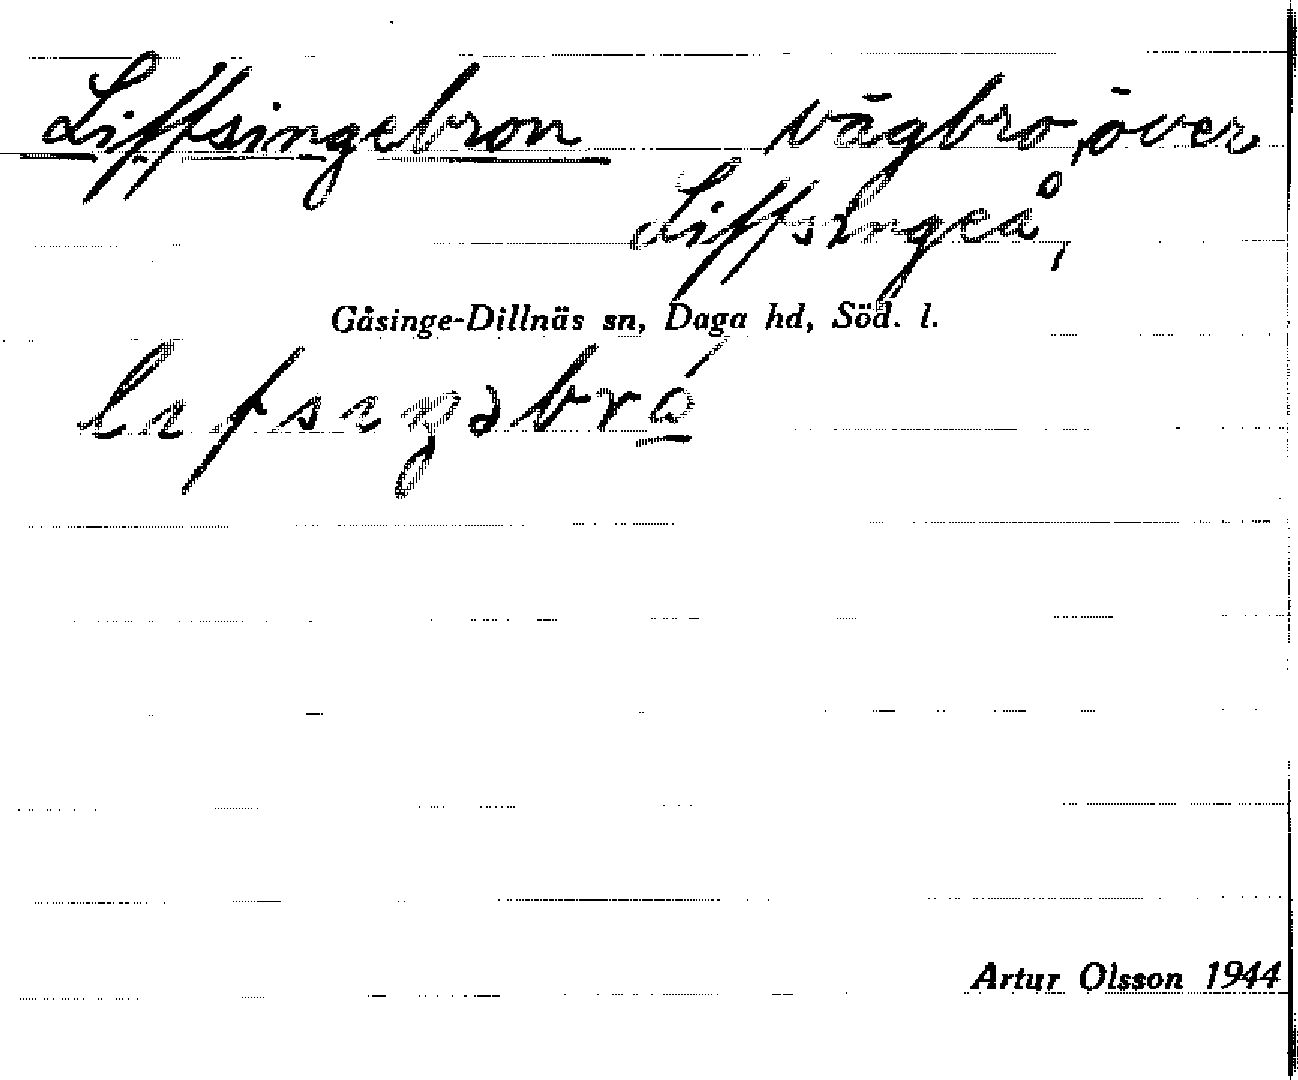 Liffsingebron vägbro, över
Liffsingeå,
Gåsinge-Dillnäs sn, Daga hd, Söd. l.
Artur Olsson 1944